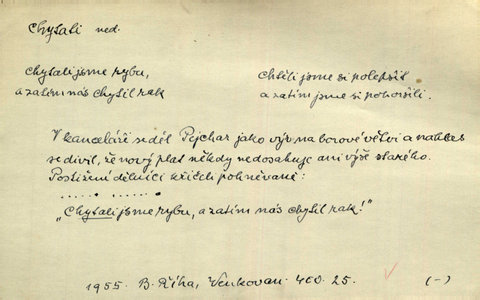 Chytati ned.
Chytali jsme rybu,
a zatím nás chytil rak
Chtěli jsme si polepšit
a zatím jsme si pohoršili.
V kanceláři seděl Pejchar jako výr na borové větvi a nahlas
se divil, že nový plat někdy nedosahuje ani výše starého.
Postižení dělníci křičeli pohněvaně:
..... . ......
„Chytali jsme rybu, a zatím nás chytil rak!"
1955. B. Říha, Venkovan. 400. 25. (-)